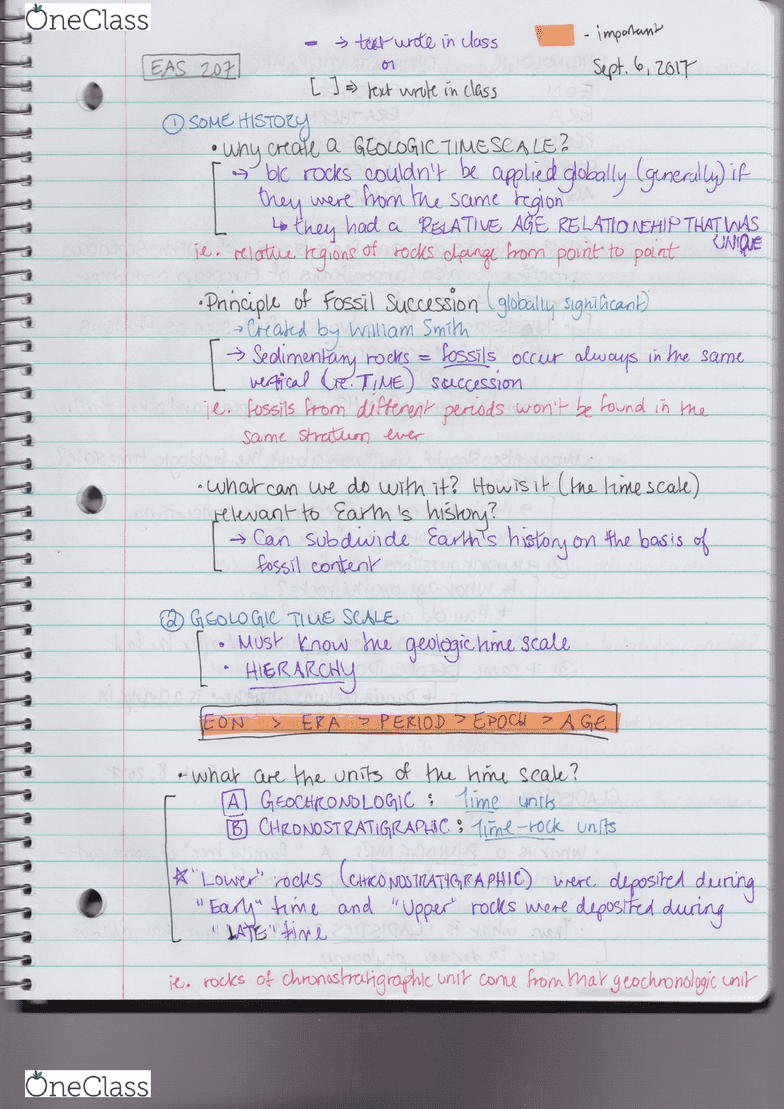 OneClass
- → text wrote in class
or
[ ] ⇒ text wrote in class
- important
Sept. 6, 2017
EAS 207
① SOME HISTORY
• Why create a GEOLOGIC TIME SCALE?
→ b/c rocks couldn't be applied globally (generally) if
they were from the same region
↳ they had a RELATIVE AGE RELATIONSHIP THAT WAS
UNIQUE
ie. relative regions of rocks change from point to point
• Principle of Fossil Succession (globally significant)
→ Created by William Smith
→ Sedimentary rocks = fossils occur always in the same
vertical (ie. TIME) succession
ie. fossils from different periods won't be found in the
same stratum ever
• What can we do with it? How is it (the time scale)
relevant to Earth's history?
→ Can subdivide Earth's history on the basis of
fossil content
② GEOLOGIC TIME SCALE
• Must know the geologic time scale
• HIERARCHY
EON > ERA > PERIOD > EPOCH > AGE
• What are the units of the time scale?
A GEOCHRONOLOGIC : Time units
B CHRONOSTRATIGRAPHIC : Time-rock units
☆ "Lower" rocks (CHRONOSTRATIGRAPHIC) were deposited during
"Early" time and "Upper" rocks were deposited during
"LATE" time
ie. rocks of chronostratigraphic unit come from that geochronologic unit
OneClass